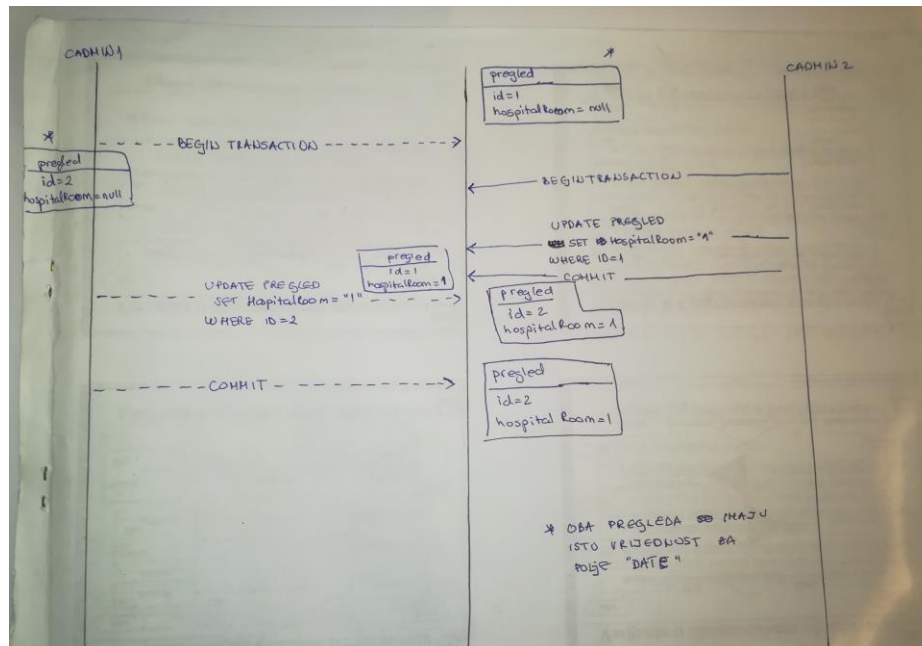 CADMIN1
*
pregled
id=1
hospitalRoom = null
CADMIN 2
BEGIN TRANSACTION
*
pregled
id=2
hospitalRoom=null
BEGIN TRANSACTION
UPDATE PREGLED
SET HospitalRoom="1"
WHERE ID=1
COMMIT
pregled
id=1
hospitalRoom=1
UPDATE PREGLED
SET HospitalRoom="1"
WHERE ID=2
pregled
id=2
hospitalRoom=1
COMMIT
pregled
id=2
hospital Room=1
* OBA PREGLEDA IMAJU
ISTO VRIJEDNOST ZA
POLJE "DATE"